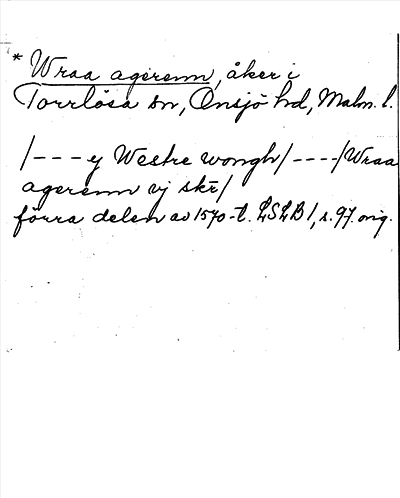 * Wraa agerenn, åker i
Torrlösa sn, Onsjö hd, Malm. l.
/--- y Westre wongh/----/Wraa
agerenn vj skr/
förra delen av 1570-t. LSLB 1, s. 97. orig.